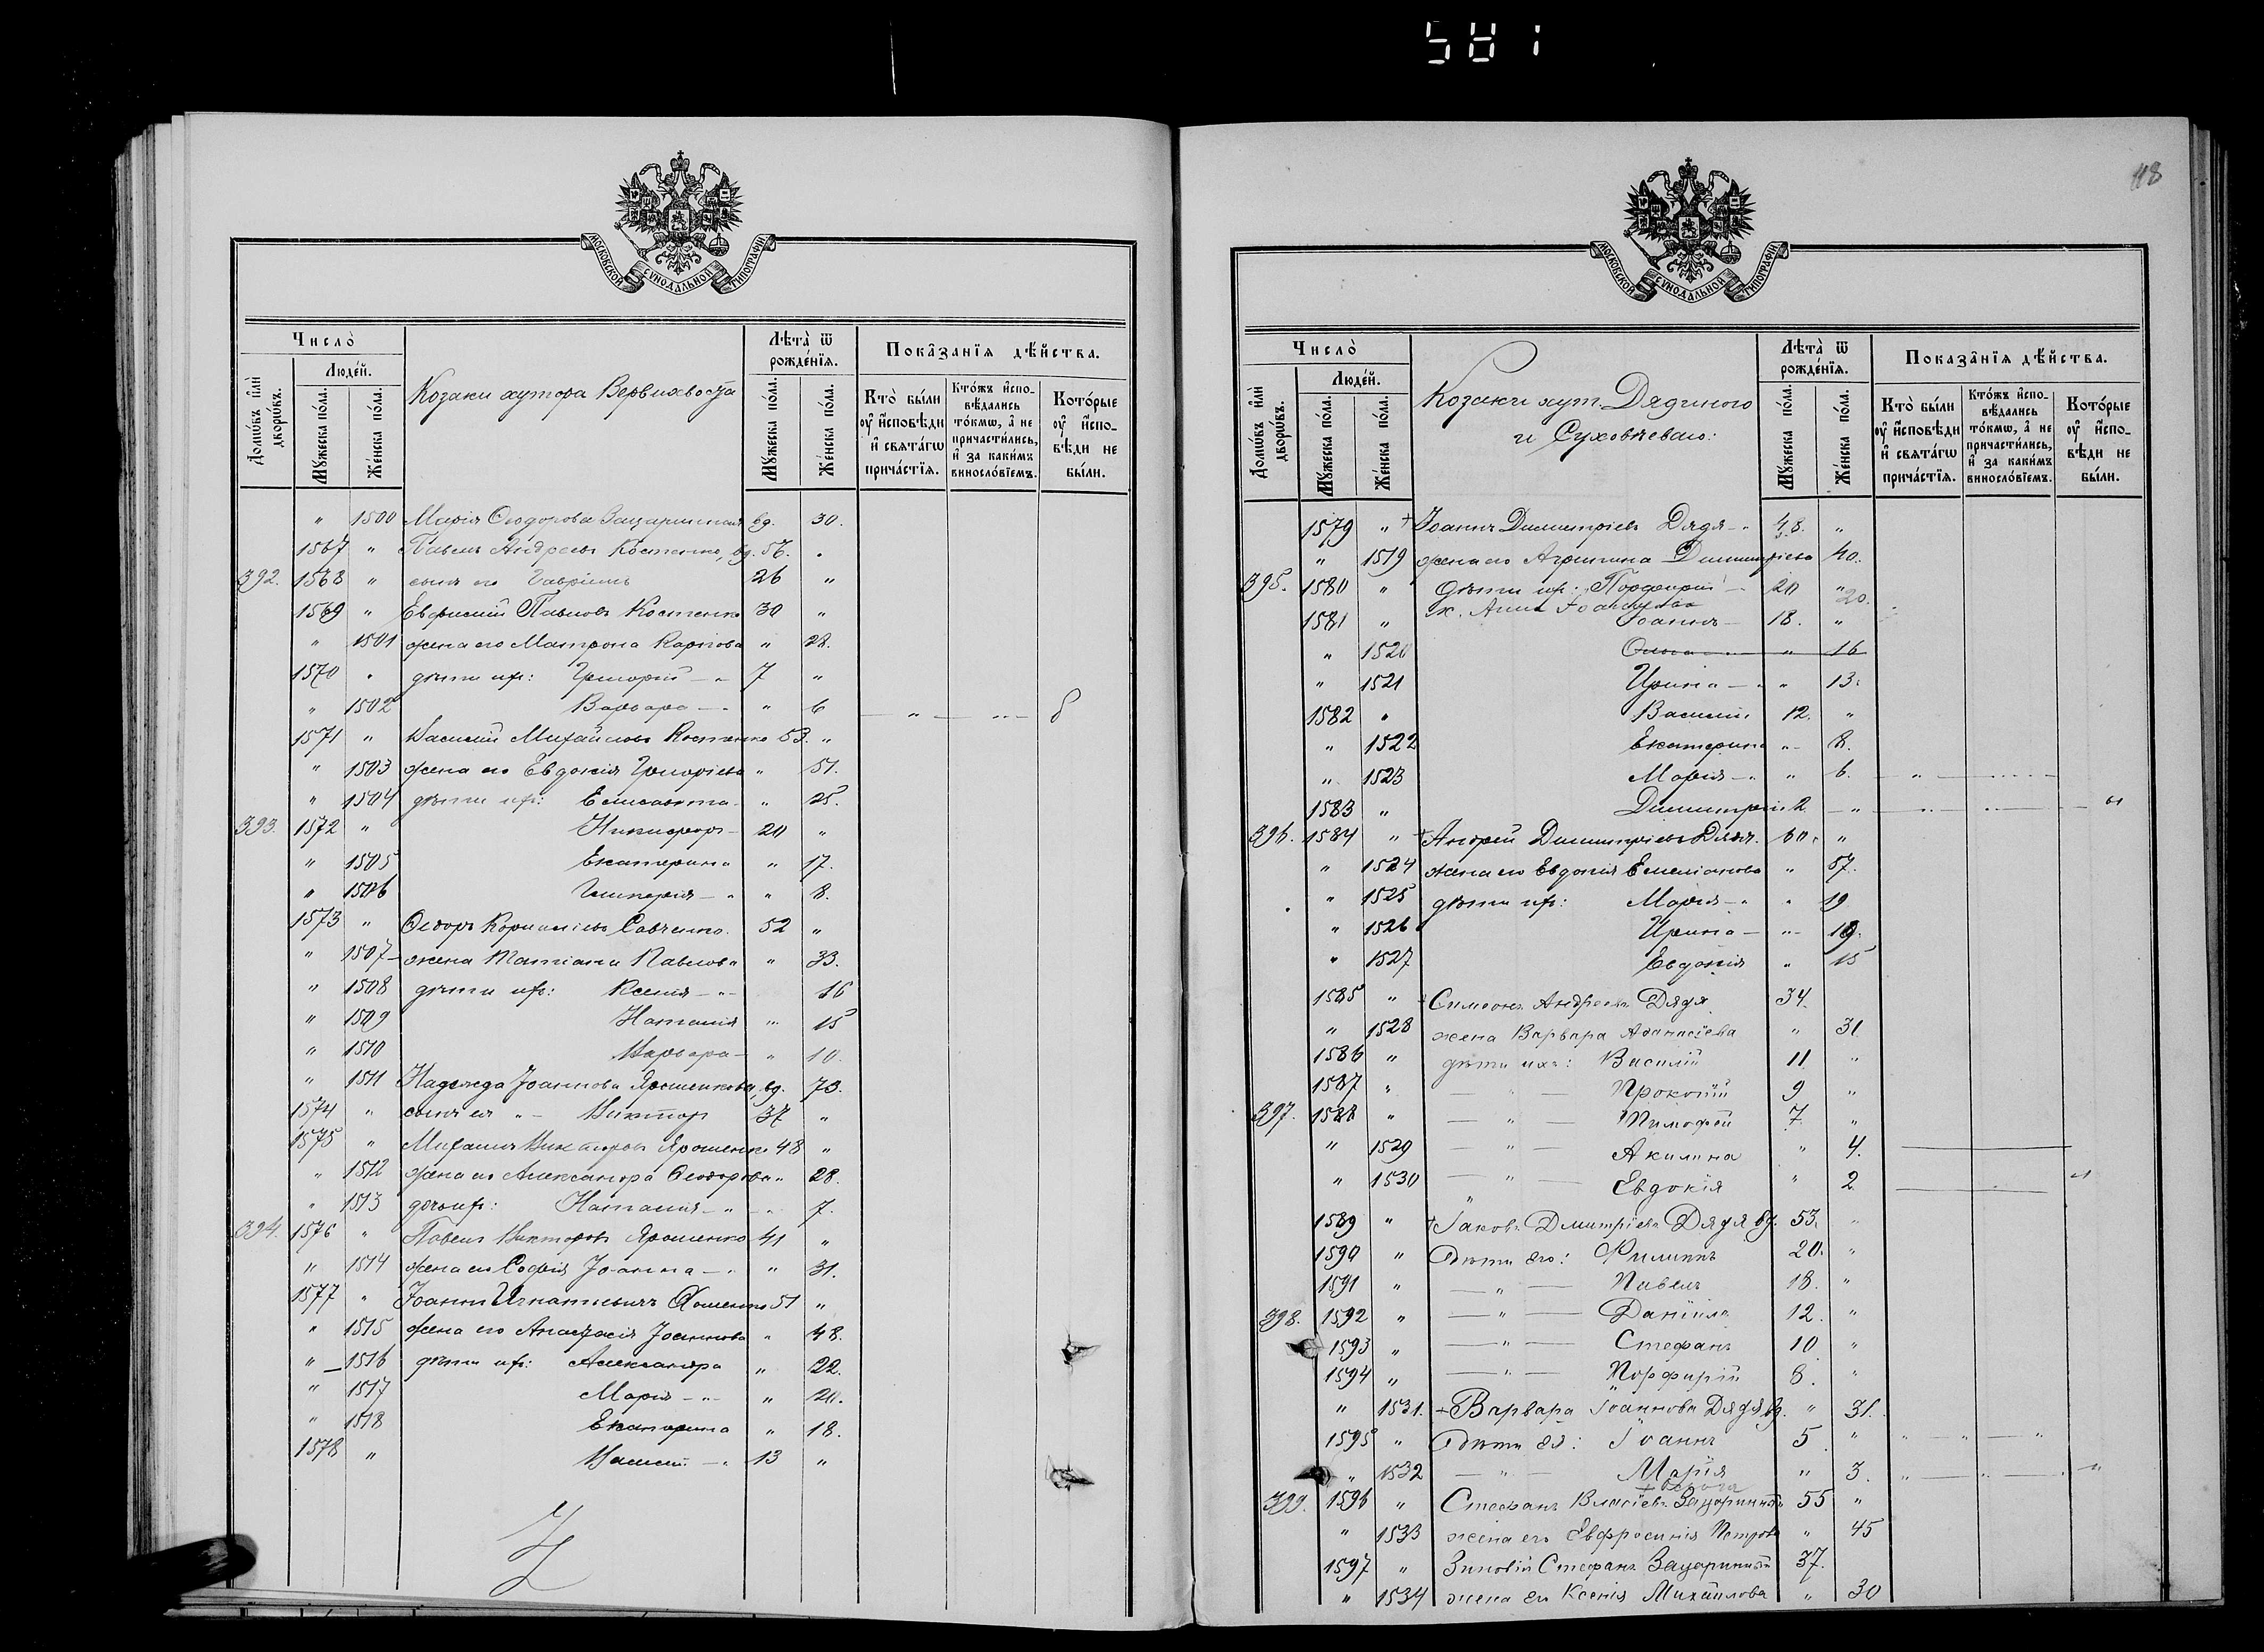 581
МОСКОВСКОЙ СѴНОДАЛЬНОЙ ТИПОГРАФІИ
Число̀
Домѡвъ и҆лѝ дворѡвъ.
Люде́й.
Мꙋжеска по́ла.
Же́нска по́ла.
Козаки хутора Вервихвоста
Лѣта̀ ѿ рожде́нїѧ.
Мꙋжеска по́ла.
Же́нска по́ла.
Показа̑нїѧ дѣ́йства.
Кто̀ бы́ли оу҆ и҆сповѣди и҆ свѧта́гѡ прича́стїѧ.
Кто́жъ и҆спо-вѣдались то́кмѡ, а҆ не причасти́лись, и҆ за каки́мъ винослѡ́вїемъ.
Кото́рые оу҆ и҆спо-вѣди не бы́ли.
" 1500 Марія Ѳеодорова Зацаринная вд. 30.
1567 " Павелъ Андреевъ Костенко, вд. 56. "
392. 1568 " сынъ его Гавріилъ 26 "
1569 " Евфимій Павловъ Костенко 30 "
" 1501 жена его Матрона Карпова " 28.
1570 " дѣти ихъ: Григорій — " 7 "
" 1502 Варвара — " " 6 — " — " —
1571 " Василій Михайловъ Костенко 53. "
" 1503 жена его Евдокія Григоріева " 51.
" 1504 дѣти ихъ: Елисавета " 25.
393. 1572 " Никифоръ — 20 "
" 1505 Екатерина " 17.
" 1506 Гликерія — " " 8.
1573 " Ѳеодоръ Корниліевъ Савченко. 52 "
" 1507 — жена Татіана Павлова " 33.
" 1508 дѣти ихъ: Ксенія — " — 16
" 1509 Наталія " 15
" 1510 Варвара — " 10.
" 1511 Надежда Іоаннова Ярошенкова, вд. 73.
1574 " сынъ ея " — Викторъ 37 "
1575 " Михаилъ Викторовъ Ярошенко 48 "
" 1512 жена его Александра Ѳеодорова " 28.
" 1513 дочь ихъ: Наталія — " — " 7.
394. 1576 " Павелъ Викторовъ Ярошенко 41 "
" 1514 жена его Софія Іоанна — " " 31.
1577 " Іоаннъ Игнатіевичъ 51 "
" 1515 жена его Анастасія Іоаннова " 48.
" — 1516 дѣти ихъ: Александра " 22.
" 1517 Марія — " — " 20.
" 1518 Екатерина " 18.
1578 " Василій — " 13 "
118
МОСКОВСКОЙ СѴНОДАЛЬНОЙ ТИПОГРАФІИ
Число̀
Домѡвъ и҆лѝ дворѡвъ.
Люде́й.
Мꙋжеска по́ла.
Же́нска по́ла.
Козаки хут. Дядиного
и Суховѣева:
Лѣта̀ ѿ рожде́нїѧ.
Мꙋжеска по́ла.
Же́нска по́ла.
Показа̑нїѧ дѣ́йства.
Кто̀ бы́ли оу҆ и҆сповѣди и҆ свѧта́гѡ прича́стїѧ.
Кто́жъ и҆спо-вѣдались то́кмѡ, а҆ не причасти́лись, и҆ за каки́мъ винослѡ́вїемъ.
Кото́рые оу҆ и҆спо-вѣди не бы́ли.
1579 " + Іоаннъ Димитріевъ Дядя — " 48. "
" 1519 жена его Агрипина Димитріева 40.
395. 1580 " дѣти ихъ: Порфирій — 20 "
ж. Анна Іоаннова 20.
1581 " Іоаннъ — 18. "
" 1520 Ольга — " 16
" 1521 Ирина — " " 13.
1582 " Василій 12. "
" 1522 Екатерина " — 8.
" 1523 Марія — " " 6. — " —
1583 " Димитрій 2 — " — "
396. 1584 " + Андрей Димитріевъ Дядя. 60. "
" 1524 жена его Евдокія Емеліанова " 57.
" 1525 дѣти ихъ: Марія — " " 19
" 1526 Ирина — " — 19.
" 1527 Евдокія " 15
1585 " + Симеонъ Андреевъ Дядя 34.
" 1528 жена Варвара Аѳанасіева " 31
1586 " дѣти ихъ: Василій 11 "
1587 " — " — Прокопій 9 "
397. 1588 " — " — Тимофей 7. "
" 1529 — " — Акилина " 4.
" 1530 — " — Евдокія " 2
1589 " + Іаковъ Дмитріевъ Дядя вд. 53. "
1590 " Дѣти его: Филиппъ 20. "
1591 " — " — Павелъ 18. "
398. 1592 " — " — Даніилъ 12. "
1593 " — " — Стефанъ 10 "
1594 " — " — Порфирій 8. "
" 1531. + Варвара Іоаннова Дядя вд. " 31.
1595 " Дѣти ея: Іоаннъ 5 " " — " — "
" 1532 — " — Марія " 3. " — " — "
399. 1596 " Стефанъ Власіевъ Зацаринный 55 "
" 1533 жена его Евфросинія Петрова " 45
1597 " Зиновій Стефанъ Зацаринный 37.
" 1534 жена его Ксенія Михаилова " 30